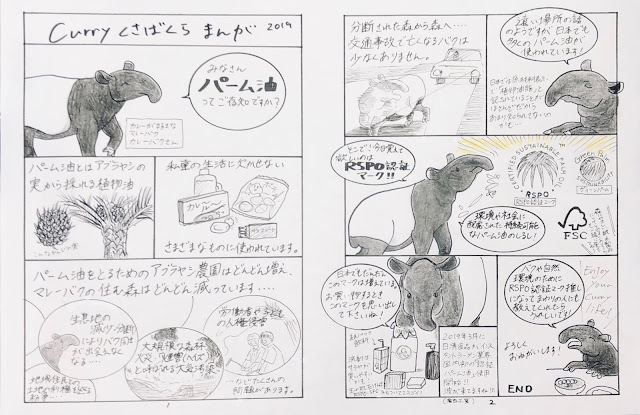 Curry くさばくら まんが 2019
みなさん
パーム油
ってご存知ですか?
カレーが好きな
マレーバク
カレーバクさん
パーム油とはアブラヤシの
実から採れる植物油
こんなかんじの実
私達の生活に欠かせない
カレー
ルー
さまざまなものに使われています。
パーム油をとるためのアブラヤシ農園はどんどん増え、
マレーバクの住む森はどんどん減っています‥‥
生息地の
減少・分断
によりバク同士
が出会えなく
なる…
大規模な森林
火災、煙害(ヘイズ)
と呼ばれる大気汚染
労働者や子ども
の人権侵害
地域住民との
土地の利権を巡る
紛争
…などたくさんの
問題があります。
1
分断された森から森へ‥‥
交通事故で亡くなるバクは
少なくありません。
遠い場所の話
のようですが日本でも
多くのパーム油が
使われています!
とこで!今日覚えて
欲しいのは
RSPO認証
マーク!!
CERTIFIED SUSTAINABLE PALM OIL
RSPO
認証マーク
グリーンパーム
FSC
環境や社会に
配慮された持続可能
なパーム油のしるし!
日本でもだんだん
このマークは増えている。
お買い物するとき
このマークを思い出し
て下さいね!
2019年3月に
日清食品がインス
タントラーメン業界
国内初の認証
パーム油を使用
開始!!
バクや自然
環境のために
RSPO認証マーク推し
になってまわりの人にも
教えてくれたら
うれしいです!
よろしく
おねがいします!
Enjoy
Your
Curry
life!
END
2